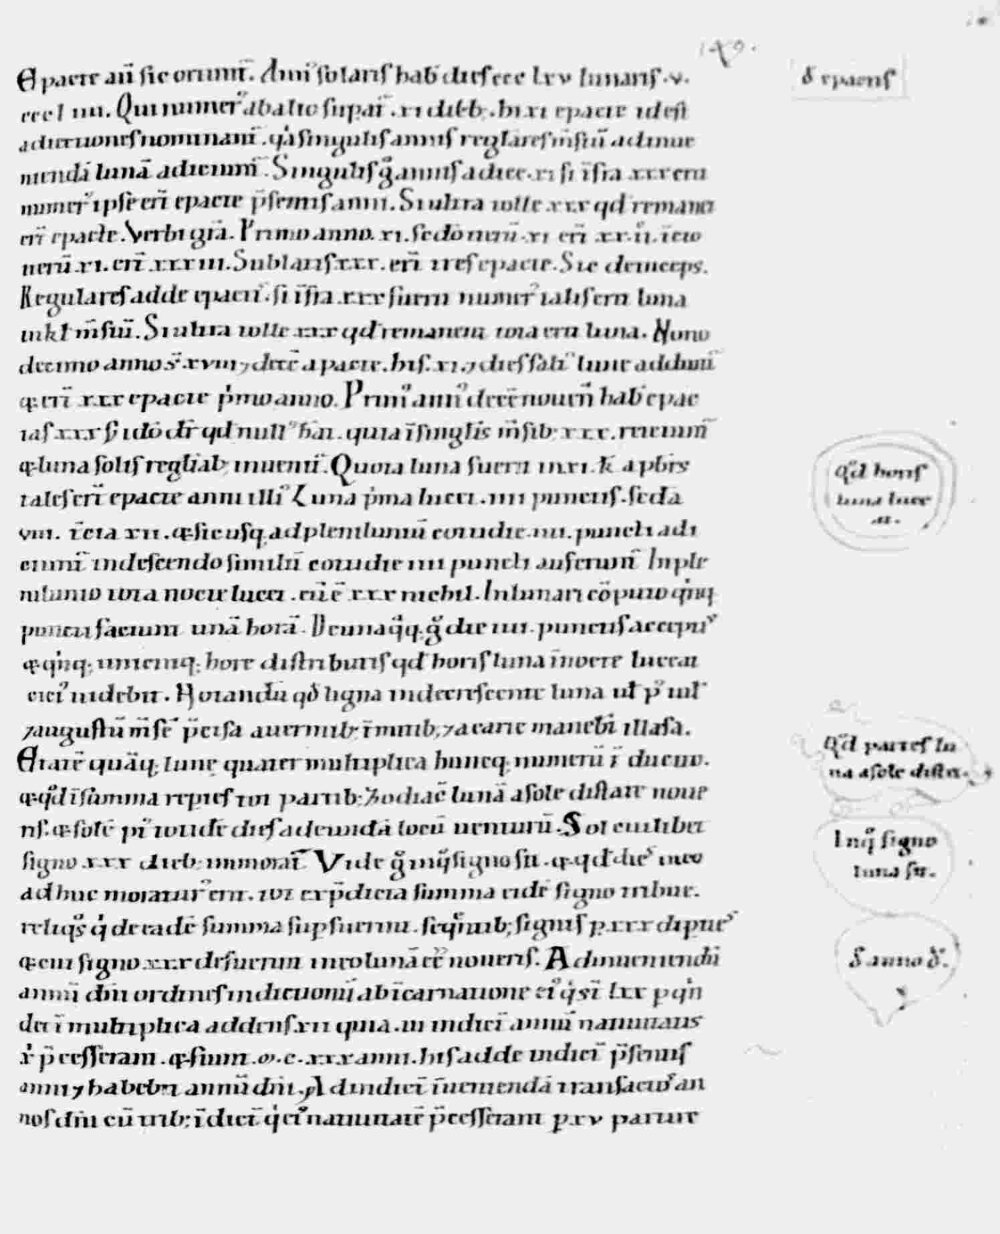 149.
Epacte aū sic oriunt̄. Ann᷒ solaris hab̄ dies ccc lxv lunaris .v.
ccc l iiii. Qui numer᷒ ab alto supat̄ .xi dieb; hi xi epacte id est
adiectiones nominant̄. q̇a singulis annis regulares m̄siū ad inue
niendā lunā adiciunt̄. Singulis ḡ annis adice .xi si īfra xxx erit
numer᷒ ipse erit̄ epacte p̄sentis anni. Si ultra tolle xxx qd̄ remanet
erit̄ epacte. Verbi grā. Primo anno .xi. sedō iterū .xi erit̄ xx.ii. t̄cio
iterū .xi. erit̄ xxxiii. Sublatis xxx. erit̄ tres epacte. Sic deinceps.
Regulares adde epactī. si īfra .xxx fuerit numer᷒ talis erit luna
in kł m̄siū. Si ultra tolle xxx qd̄ remanent tota erit luna. Nono
decimo anno s̄ xviii ⁊
epacte. his .xi. ⁊ dies salt᷒ lune addunt̄
q; erit̄ xxx epacte p̄mo anno. Primi ann᷒ decēnouen̄ hab̄ epac
tas xxx s̄ idō dr̄ qd̄ null᷒ hāt. quia ī singlis m̄sib; xxx. reiciunt̄
& luna solis reglīab; inuenit̄. Quota luna fuerit in xi. k apłis
tales erit̄ epacte anni illi᷒ Luna p̄ma lucet .iiii punctis. sedā
viii. t̄cia xii. & sic usq; ad pleniluniū cottidie .iiii. puncti adi
ciunt̄ in descendo similit̄ cottidie iiii puncti auferunt̄ In ple
nilunio tota nocte lucet. cū ē xxx nichil. In lunari cōputo q̇nq;
puncti faciunt unā horā. De unaq̄q; ḡ die iiii. punctis accepti᷒
& q̇nq; unicuiq; hore distributis qd̄ horis luna ī nocte luceat
cici᷒ uidebit. Notandū qd̄ ligna in decrescente luna ut p᷒ iul̄
⁊ augustū m̄sē p̄cisa a uermib; īmunib; ⁊ a carie manebt̄ illasa.
Etatē quāq; lune quater multiplica huncq; numerū ī ducito.
& qd̄ ī summa repies tot partib; zodiac̄ lunā a sole distare noue
ris. & solē p᷒ totidē dies ad eundā locū uenturū. Sol cuilibet
signo xxx dieb; immorat̄. Vide ḡ in q̊ signo sit. & qd̄ die᷒ in eo
adhuc moratur᷒ erit. tot ex p̄dicta summa eidē signo tribue.
reliq᷒s q̇ de eadē summa supfuerint. seq̄ntib; signis p xxx dipties
& cui signo xxx defuerint in eo lunā ēē noueris. Ad inueniendū
annū dm̄ ordines indictionū ab īcarnatione ei᷒ q̇ sī lxx p q̇n
deī multiplica addens xii quia .iii indict̄ annū natiuitatis
x̄ p̄cesserant. & fiunt .ꝏ.c.xxx anni. his adde indict̄ p̄sentis
anni ⁊ habebit annū dn̄i. Ad indict̄ īueniendā transactos an
nos dn̄i cū trib; īdict̄ q̇ ei᷒ natiuitatē p̄cesserant p xv partire
δ epactis
Qd̄ horis
luna luce
at.
Qd̄ partes lu
na a sole distet.
In q̊ signo
luna sit.
δ anno δ.